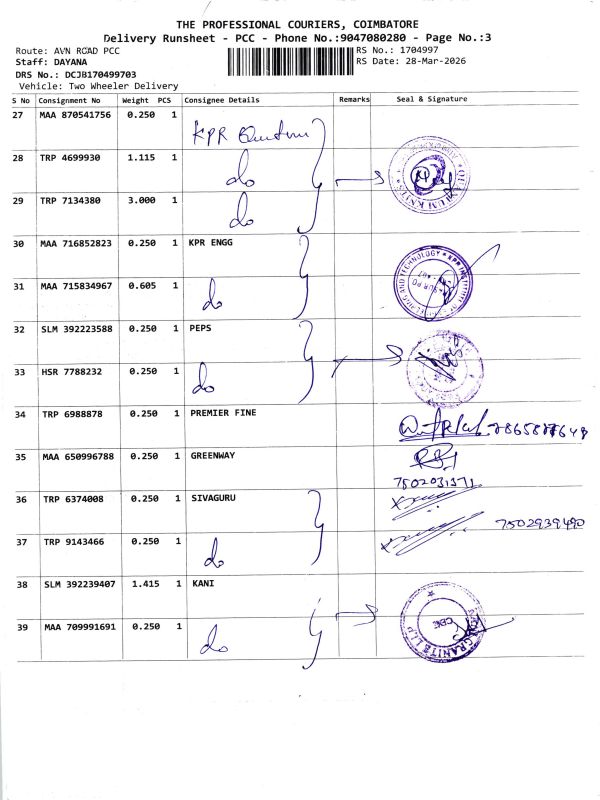 THE PROFESSIONAL COURIERS, COIMBATORE
Delivery Runsheet - PCC - Phone No.:9047080280 - Page No.:3
Route: AVN ROAD PCC
RS No.: 1704997
Staff: DAYANA
RS Date: 28-Mar-2026
DRS No.: DCJB170499703
Vehicle: Two Wheeler Delivery
S No Consignment No Weight PCS Consignee Details Remarks Seal & Signature
27 MAA 870541756 0.250 1 KPR
28 TRP 4699930 1.115 1 do
29 TRP 7134380 3.000 1 do
30 MAA 716852823 0.250 1 KPR ENGG
31 MAA 715834967 0.605 1 do
32 SLM 392223588 0.250 1 PEPS
33 HSR 7788232 0.250 1 do
34 TRP 6988878 0.250 1 PREMIER FINE
35 MAA 650996788 0.250 1 GREENWAY
7502031571
36 TRP 6374008 0.250 1 SIVAGURU
7502939490
37 TRP 9143466 0.250 1 do
38 SLM 392239407 1.415 1 KANI
39 MAA 709991691 0.250 1 do
GRANITE LLP